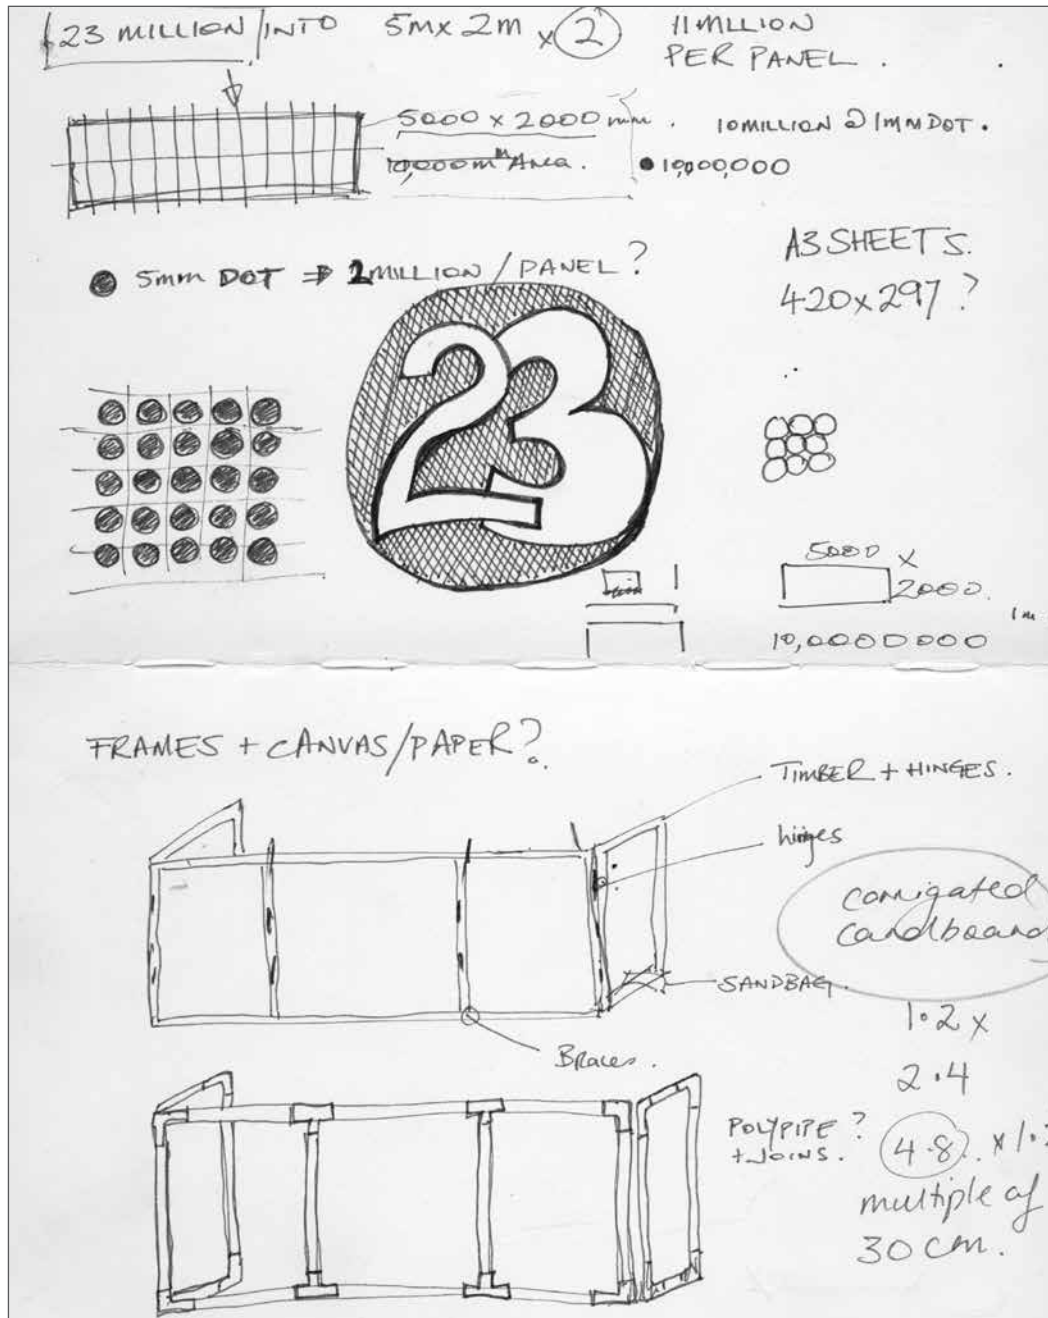 23 MILLION / INTO 5M x 2M x 2 11 MLLION
PER PANEL.
5000 x 2000 mm. 10 MILLION @ 1MM DOT.
10,000m Area. 10,000,000
5mm DOT ⇒ 2 MILLION / PANEL?
A3 SHEETS.
420 x 297?
23
5000 x
2000.
1m
10,0000000
FRAMES + CANVAS/PAPER?
TIMBER + HINGES.
hinges
corrigated
cardboard
SANDBAG.
Braces.
1.2 x
2.4
POLYPIPE?
+ JOINS.
4.8. x 1.
multiple of
30 cm.